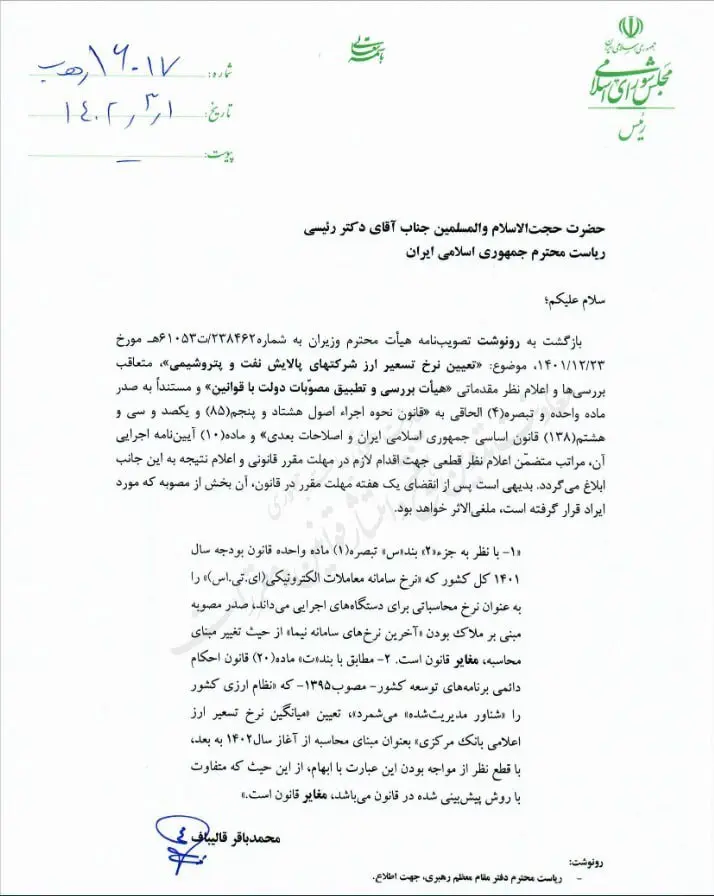 جمهوری اسلامی ایران
مجلس شورای اسلامی
رئیس
باسمه تعالی
شماره: ۱۶۰۱۷
تاریخ: ۱۴۰۲/۳/۱
پیوست: –
حضرت حجت‌الاسلام والمسلمین جناب آقای دکتر رئیسی
ریاست محترم جمهوری اسلامی ایران
سلام علیکم؛
بازگشت به رونوشت تصویب‌نامه هیأت محترم وزیران به شماره۲۳۸۴۶۲/ت۶۱۰۵۳هـ مورخ
۱۴۰۱/۱۲/۲۳، موضوع: «تعیین نرخ تسعیر ارز شرکتهای پالایش نفت و پتروشیمی»، متعاقب
بررسی‌ها و اعلام نظر مقدماتی «هیأت بررسی و تطبیق مصوّبات دولت با قوانین» و مستنداً به صدر
ماده واحده و تبصره(۴) الحاقی به «قانون نحوه اجراء اصول هشتاد و پنجم(۸۵) و یکصد و سی و
هشتم(۱۳۸) قانون اساسی جمهوری اسلامی ایران و اصلاحات بعدی» و ماده(۱۰) آیین‌نامه اجرایی
آن، مراتب متضمّن اعلام نظر قطعی جهت اقدام لازم در مهلت مقرر قانونی و اعلام نتیجه به این جانب
ابلاغ می‌گردد. بدیهی است پس از انقضای یک هفته مهلت مقرر در قانون، آن بخش از مصوبه که مورد
ایراد قرار گرفته است، ملغی‌الاثر خواهد بود.
«۱- با نظر به جزء«۲» بند«س» تبصره(۱) ماده واحده قانون بودجه سال
۱۴۰۱ کل کشور که «نرخ سامانه معاملات الکترونیکی(ای.تی.اس)» را
به عنوان نرخ محاسباتی برای دستگاه‌های اجرایی می‌داند، صدر مصوبه
مبنی بر ملاک بودن «آخرین نرخ‌های سامانه نیما» از حیث تغییر مبنای
محاسبه، مغایر قانون است. ۲- مطابق با بند«ت» ماده(۲۰) قانون احکام
دائمی برنامه‌های توسعه کشور- مصوب۱۳۹۵- که «نظام ارزی کشور
را «شناور مدیریت‌شده» می‌شمرد»، تعیین «میانگین نرخ تسعیر ارز
اعلامی بانک مرکزی» بعنوان مبنای محاسبه از آغاز سال۱۴۰۲ به بعد،
با قطع نظر از مواجه بودن این عبارت با ابهام، از این حیث که متفاوت
با روش پیش‌بینی شده در قانون می‌باشد، مغایر قانون است.»
محمدباقر قالیباف
رونوشت:
- ریاست محترم دفتر مقام معظم رهبری، جهت اطلاع.